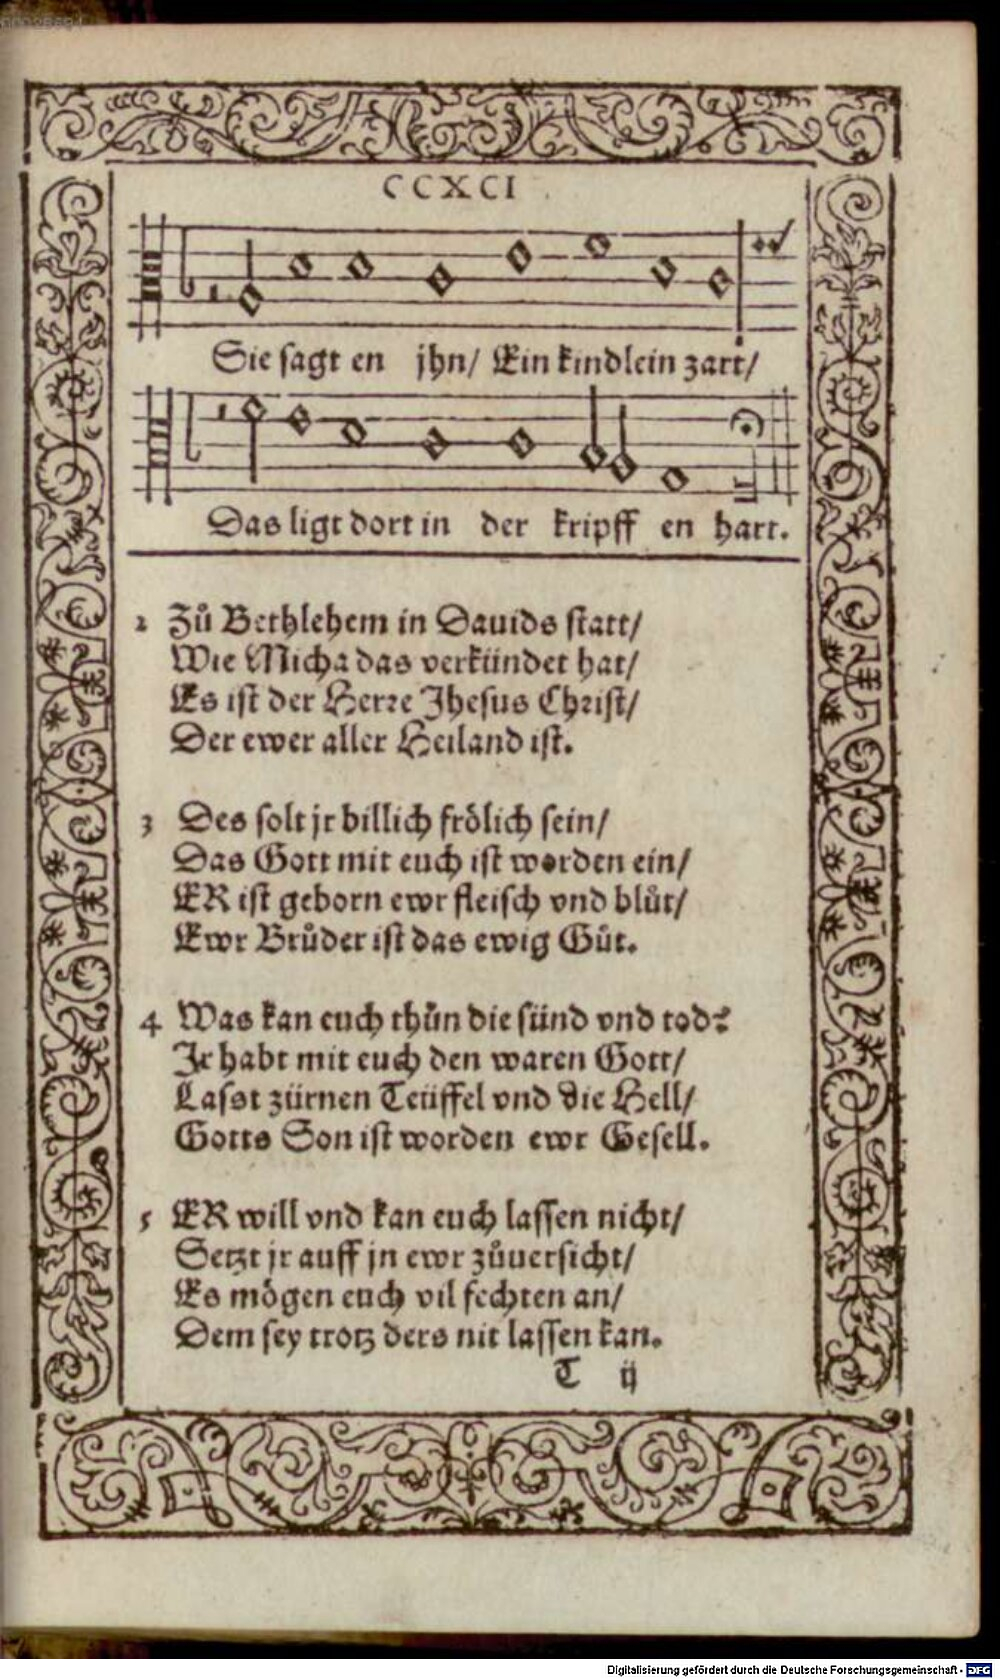 00028684
CCXCI
Sie sagt en jhn/ Ein kindlein zart/
Das ligt dort in der kripff en hart.
2 Zů Bethlehem in Dauids statt/
Wie Micha das verkündet hat/
Es ist der Herre Jhesus Christ/
Der ewer aller Heiland ist.
3 Des solt jr billich frölich sein/
Das Gott mit euch ist worden ein/
ER ist geborn ewr fleisch vnd blůt/
Ewr Brůder ist das ewig Gůt.
4 Was kan euch thůn die sünd vnd tod?
Jr habt mit euch den waren Gott/
Lasst zürnen Teüffel vnd die Hell/
Gotts Son ist worden ewr Gesell.
5 ER will vnd kan euch lassen nicht/
Setzt jr auff jn ewr zůuersicht/
Es mögen euch vil fechten an/
Dem sey trotz ders nit lassen kan.
T ij
Digitalisierung gefördert durch die Deutsche Forschungsgemeinschaft - DFG